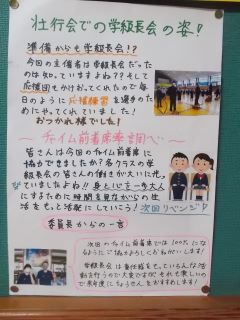 壮行会での学級長会の姿!
準備からも学級長会!?
今回の主催者は学級長会だった
のは知っていますよね??そして
応援団もかけおってくれたので毎
日のように応援練習を選手のた
めにやってくれていました!
おつかれ様でした!
〜チャイム前着席率調べ〜
皆さんは今回のチャイム前着席に
協力できましたか?各クラスの学
級長会の皆さんの働きかけにも、
なっていましたよね!! 身と心を一歩大人
にするために時間を見ながらの生
活をもっと活発にしていこう! 次回リベンジ♪
委員長からの一言
次回のチャイム前着席では100%にな
るようにご協力よろしくお願いします!
学級長会は責任感をもって、いろんな活
動を行うので大変ですが、それも楽しいの
で来年度にちょうせんをおすすめします!